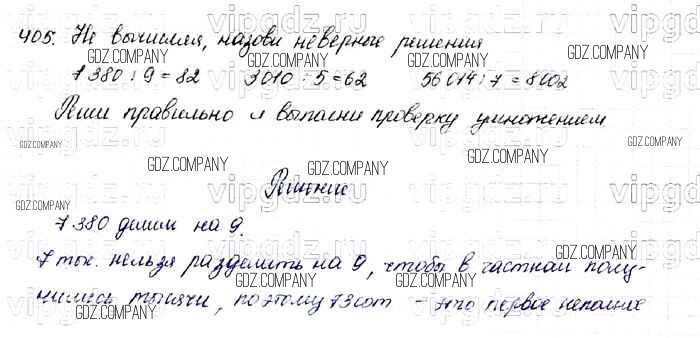 405. Не вычисляя, назови неверные решения
7380 : 9 = 82 3010 : 5 = 62 56014 : 7 = 8002
Реши правильно и выполни проверку умножением.
Решение
7380 делим на 9.
7 тыс. нельзя разделить на 9, чтобы в частном полу-
чились тысячи, поэтому 73 сот - это первое неполное
GDZ.COMPANY
vipgdz.ru